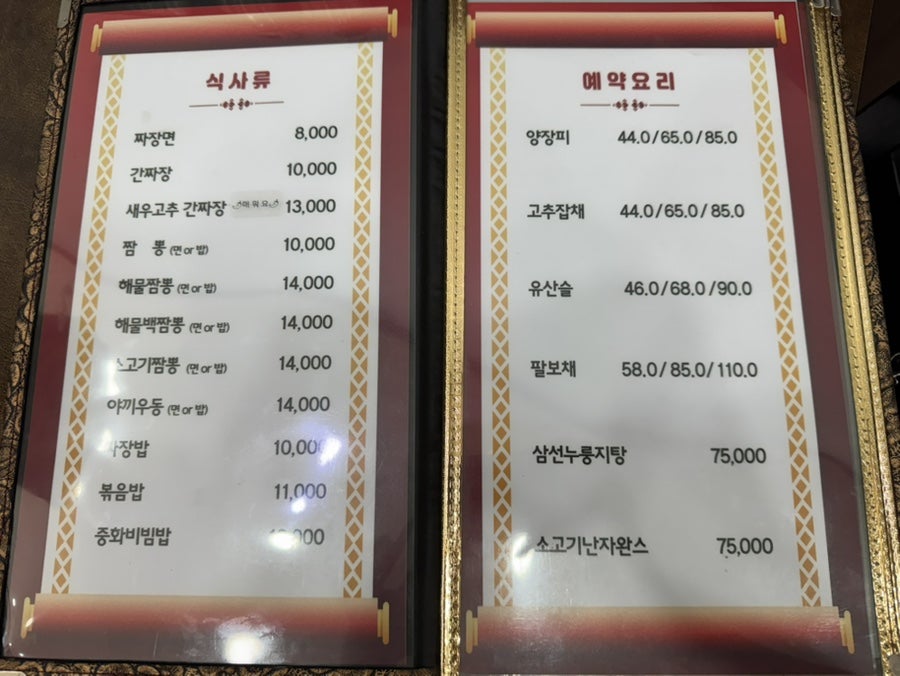 식사류
짜장면 8,000
간짜장 10,000
새우고추 간짜장 매워요 13,000
짬 뽕 (면 or 밥) 10,000
해물짬뽕 (면 or 밥) 14,000
해물백짬뽕 (면 or 밥) 14,000
소고기짬뽕 (면 or 밥) 14,000
야끼우동 (면 or 밥) 14,000
짜장밥 10,000
볶음밥 11,000
중화비빔밥
예약요리
양장피 44.0/65.0/85.0
고추잡채 44.0/65.0/85.0
유산슬 46.0/68.0/90.0
팔보채 58.0/85.0/110.0
삼선누룽지탕 75,000
소고기난자완스 75,000